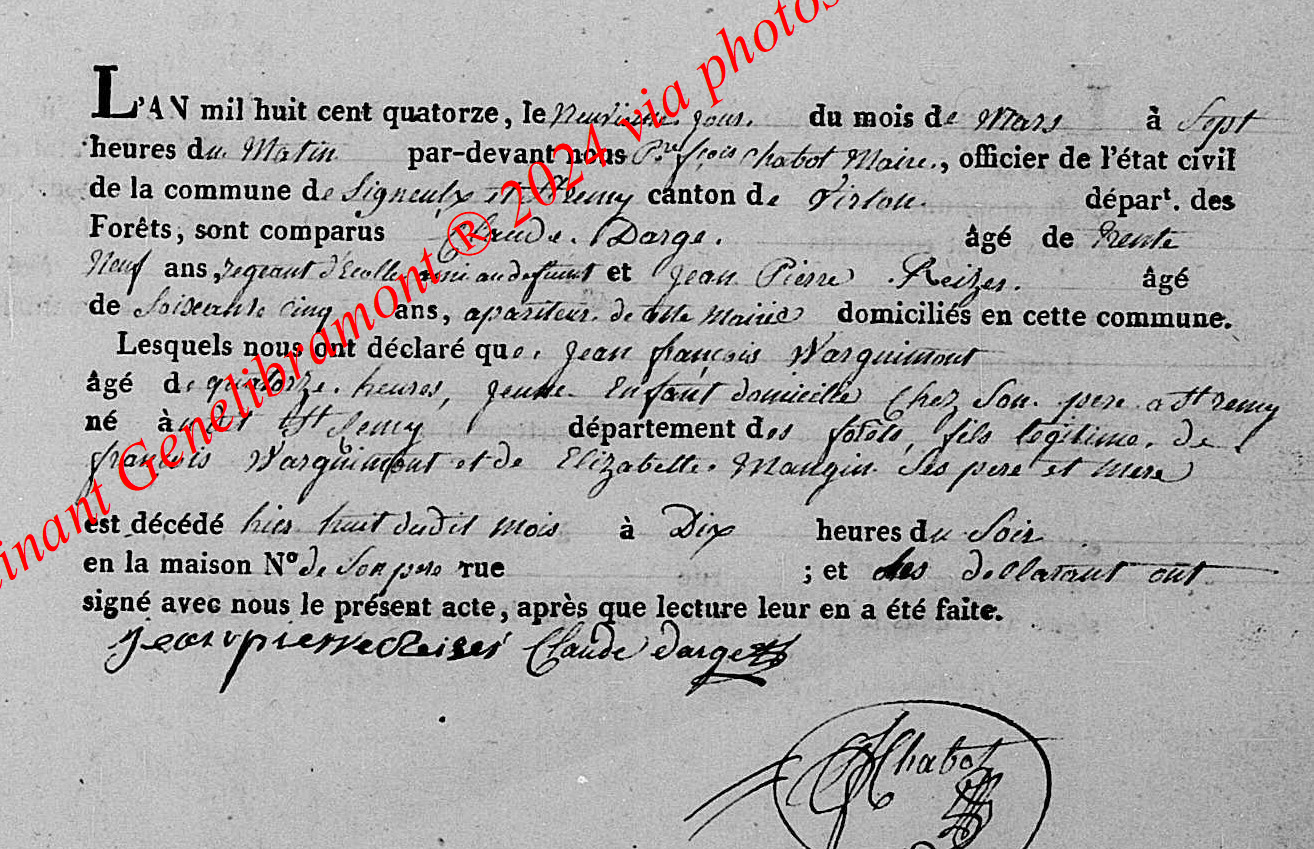 L'AN mil huit cent quatorze, le Neuvieme jour du mois de Mars à Sept
heures du Matin par-devant nous Pre fçois Chabot Maire, officier de l'état civil
de la commune de Signeulx et St remy canton de Virton départ. des
Forêts, sont comparus Claude Darge. âgé de trente
Neuf ans, regeant d'Ecolle ami au defunt et Jean Pierre Reizer. âgé
de Soixante cinq ans, apariteur de cette Mairie domiciliés en cette commune.
Lesquels nous ont déclaré que Jean françois Warquimont
âgé de quatorze heures, jeune Enfant domicille Chez Son pere a St remy
né à St Remy département des forêts, fils legitime de
françois Warquimont et de Elizabette Mangin Ses pere et mere
est décédé hier huit dudit mois à Dix heures du Soir
en la maison Nº de Son pere rue ; et les dellarant ont
signé avec nous le présent acte, après que lecture leur en a été faite.
Jean pierre Reiser Claude darge
Chabot
inant Genelibramont ® 2024 via photos